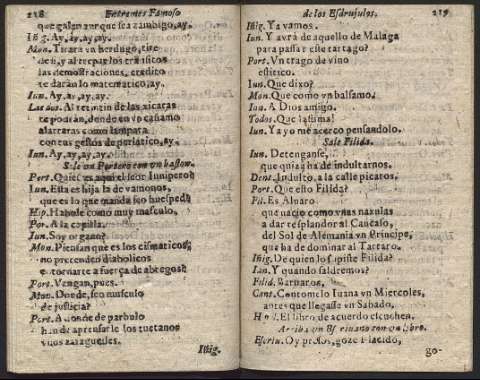 218 Entremes Famoso
que galan aurque sea zambigo, ay.
Iñig. Ay, ay, ay, ay.
Mon. Tirara vn berdugo, tire
de ti, y al trepar los
las demostraciones, credito
te darán lo matematico, ay.
Iun. Ay, ay, ay, ay.
Las dos. Al retintin de las xicaras
te podrán, donde en vo cañamo
alatraras como lampara
con tus gestos de perlatico, ay.
Iun. Ay, ay, ay, ay.
Sale vn Portero con vn baston.
Port. Quiel es aqui el seor Iunipero?
Iun. Esta es hija la de vamonos,
que es lo que manda seo huesped?
Hip. Hable como muy masculo,
Por. A la capilla.
Iun. Soy organo?
Mon. Piensan que es los cismaticos,
no pretenden diabolicos
tornarte a fuerça de abregos?
Port. Vengan, pues.
Mon. Donde, seo musculo
de justicia?
Port. A donde de parbulo
han de apretarle los tuetanos
vnos zaraguelles.
Iñig.
de los Esdrujulos. 219
Iñig. Ya vamos.
Iun. Y avrá de aquello de Malaga
para passar este tartago?
Port. Vn trago de vino
estitico.
Iun. Que dixo?
Mon. Que como vn balsamo.
Iun. A Dios amigo.
Todos. Que lastima!
Iun. Ya yo me acerco pensandolo.
Sale Filida.
Iun. Detenganse,
que quizà ha de indultarnos.
Dent. Indulto, a la calle picaros.
Port. Que esto Filida?
Fil. Es Alvaro
que nació como vnas nazulas
a dar resplandor al Caucaso,
del Sol de Alemania vn Principe,
que ha de dominar al Tartaro.
Iñig. De quien lo supiste Filida?
Iun. Y quando saldremos?
Filid. Barbaros,
Cant. Contomelo Iuana vn Miercoles,
antes que llegasse vn Sabado,
Hipol. El libro de acuerdo escuchen.
Arriba vn Escrivano con vn libro.
Escriu. Oy presos, goze Placido,
go-